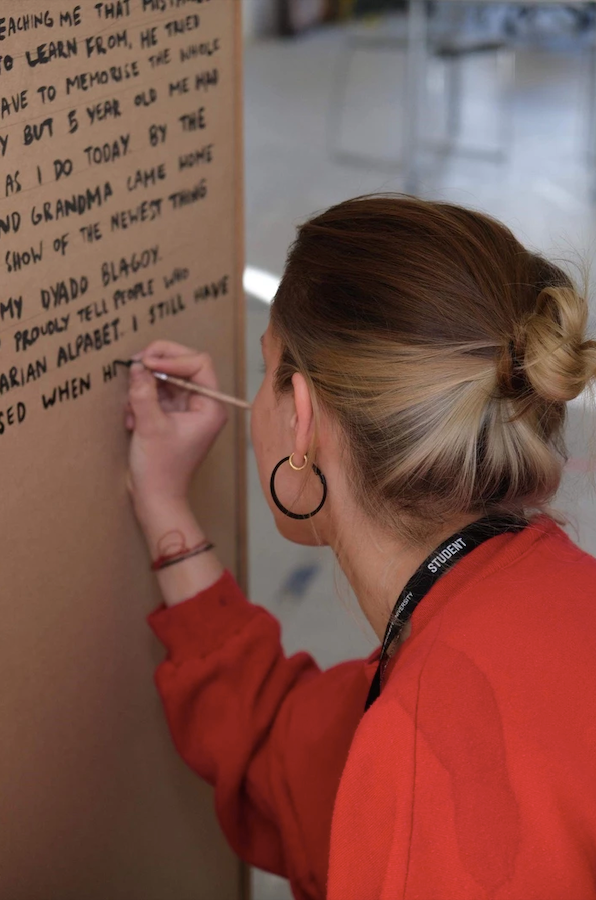 EACHING ME THAT MISTAKES
TO LEARN FROM, HE TRIED
AVE TO MEMORISE THE WHOLE
Y BUT 5 YEAR OLD ME HAD
AS I DO TODAY BY THE
ND GRANDMA CAME HOME
SHOW OF THE NEWEST THING
MY DYADO BLAGOY.
PROUDLY TELL PEOPLE WHO
ARIAN ALPHABET. I STILL HAVE
SED WHEN H
STUDENT
VERSITY